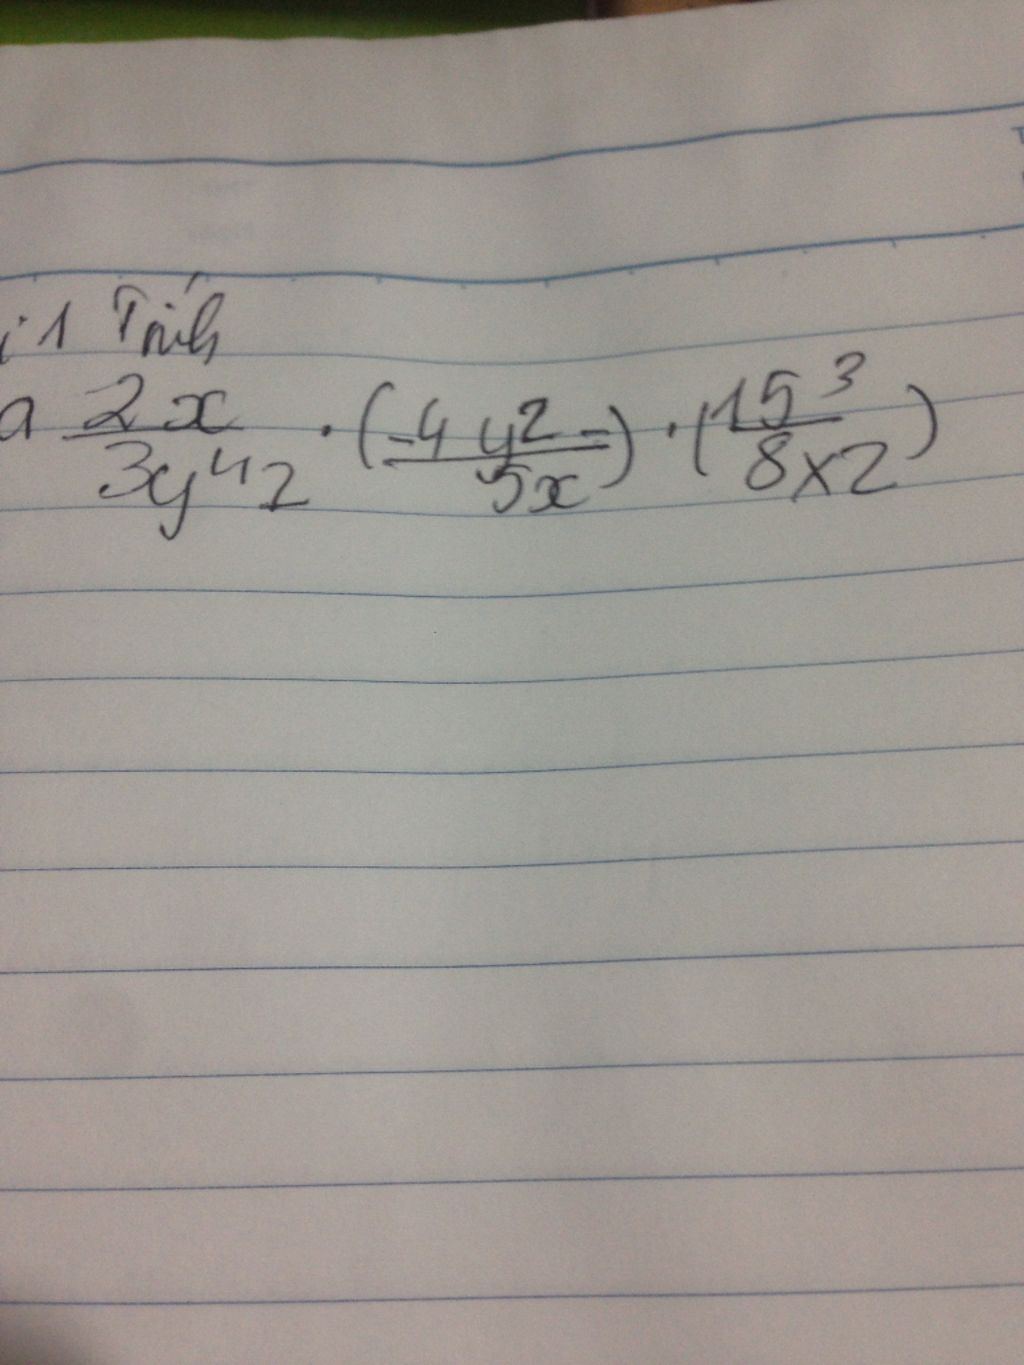 i 1 Tính
a 2x/3y⁴z . (-4y2-/5x) . (15³/8x2)